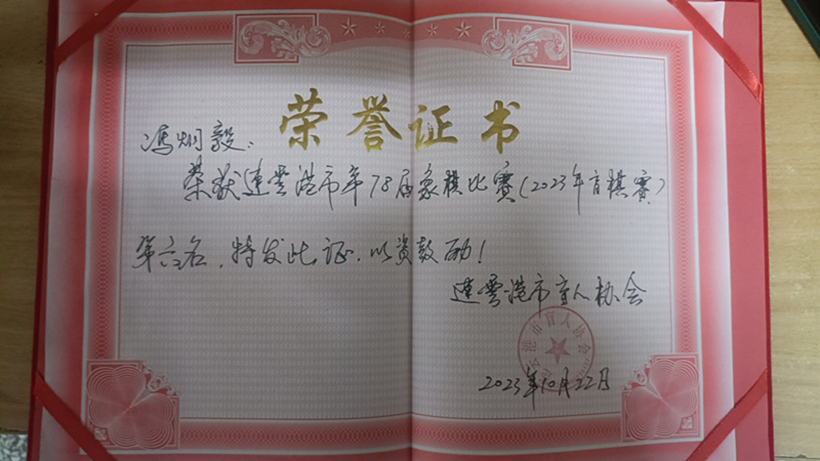 荣誉证书
冯炯毅:
荣获连云港市第78届象棋比赛(2023年盲棋赛)
第六名,特发此证,以资鼓励!
连云港市盲人协会
连云港市盲人协会
2023年10月22日